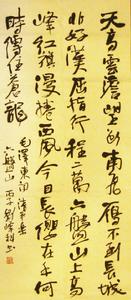 天高雲澹望断南飛雁不到長城
非好漢屈指行程二萬六盤山上高
峰紅旗漫捲西風今日長纓在手何
時縛住蒼龍
毛澤東詞清平乐
六盤山 丙子 劉